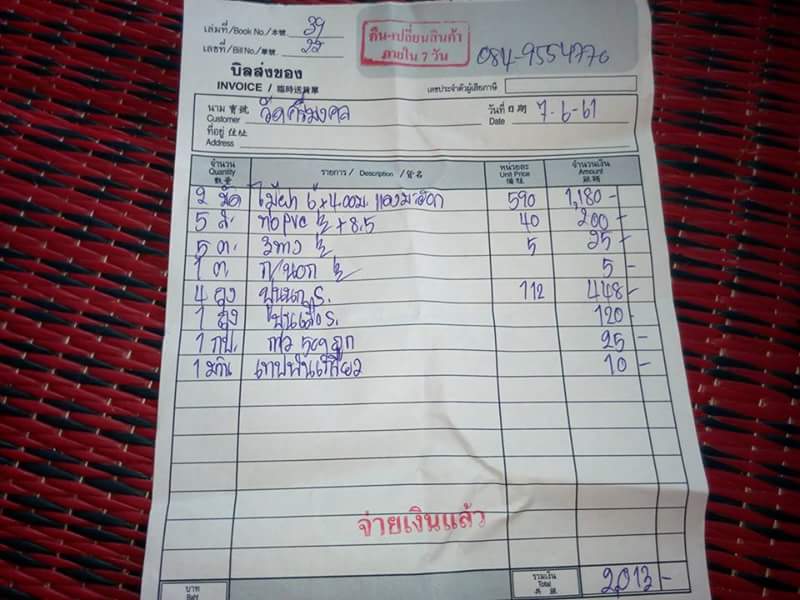 เล่มที่/Book No./本號 39
เลขที่/Bill No./單號 22
คืน-เปลี่ยนสินค้า
ภายใน 7 วัน
084-9554770
บิลส่งของ
INVOICE / 臨時送貨單
เลขประจำตัวผู้เสียภาษี
นาม 寶號 Customer วัดศรีมงคล
วันที่ 日期 Date 7-6-61
ที่อยู่ 住址 Address
จำนวน Quantity 數量 รายการ / Description / 貨名 หน่วยละ Unit Price 價值 จำนวนเงิน Amount 銀碼
2 มัด ไม้ฝา 6x4.00ม. 590 1,180-
5 ส. ท่อ PVC ½ x 8.5 40 200-
5 ต. 3ทาง ½ 5 25-
1 ต. ก/นอก ½ 5-
4 ถุง ปูนนก ร. 112 448-
1 ถุง ปูนเสือ ร. 120-
1 กป. กาว 50g 25-
1 ม้วน เทปพันเกลียว 10-
จ่ายเงินแล้ว
บาท Baht
รวมเงิน Total 共銀 2,013-